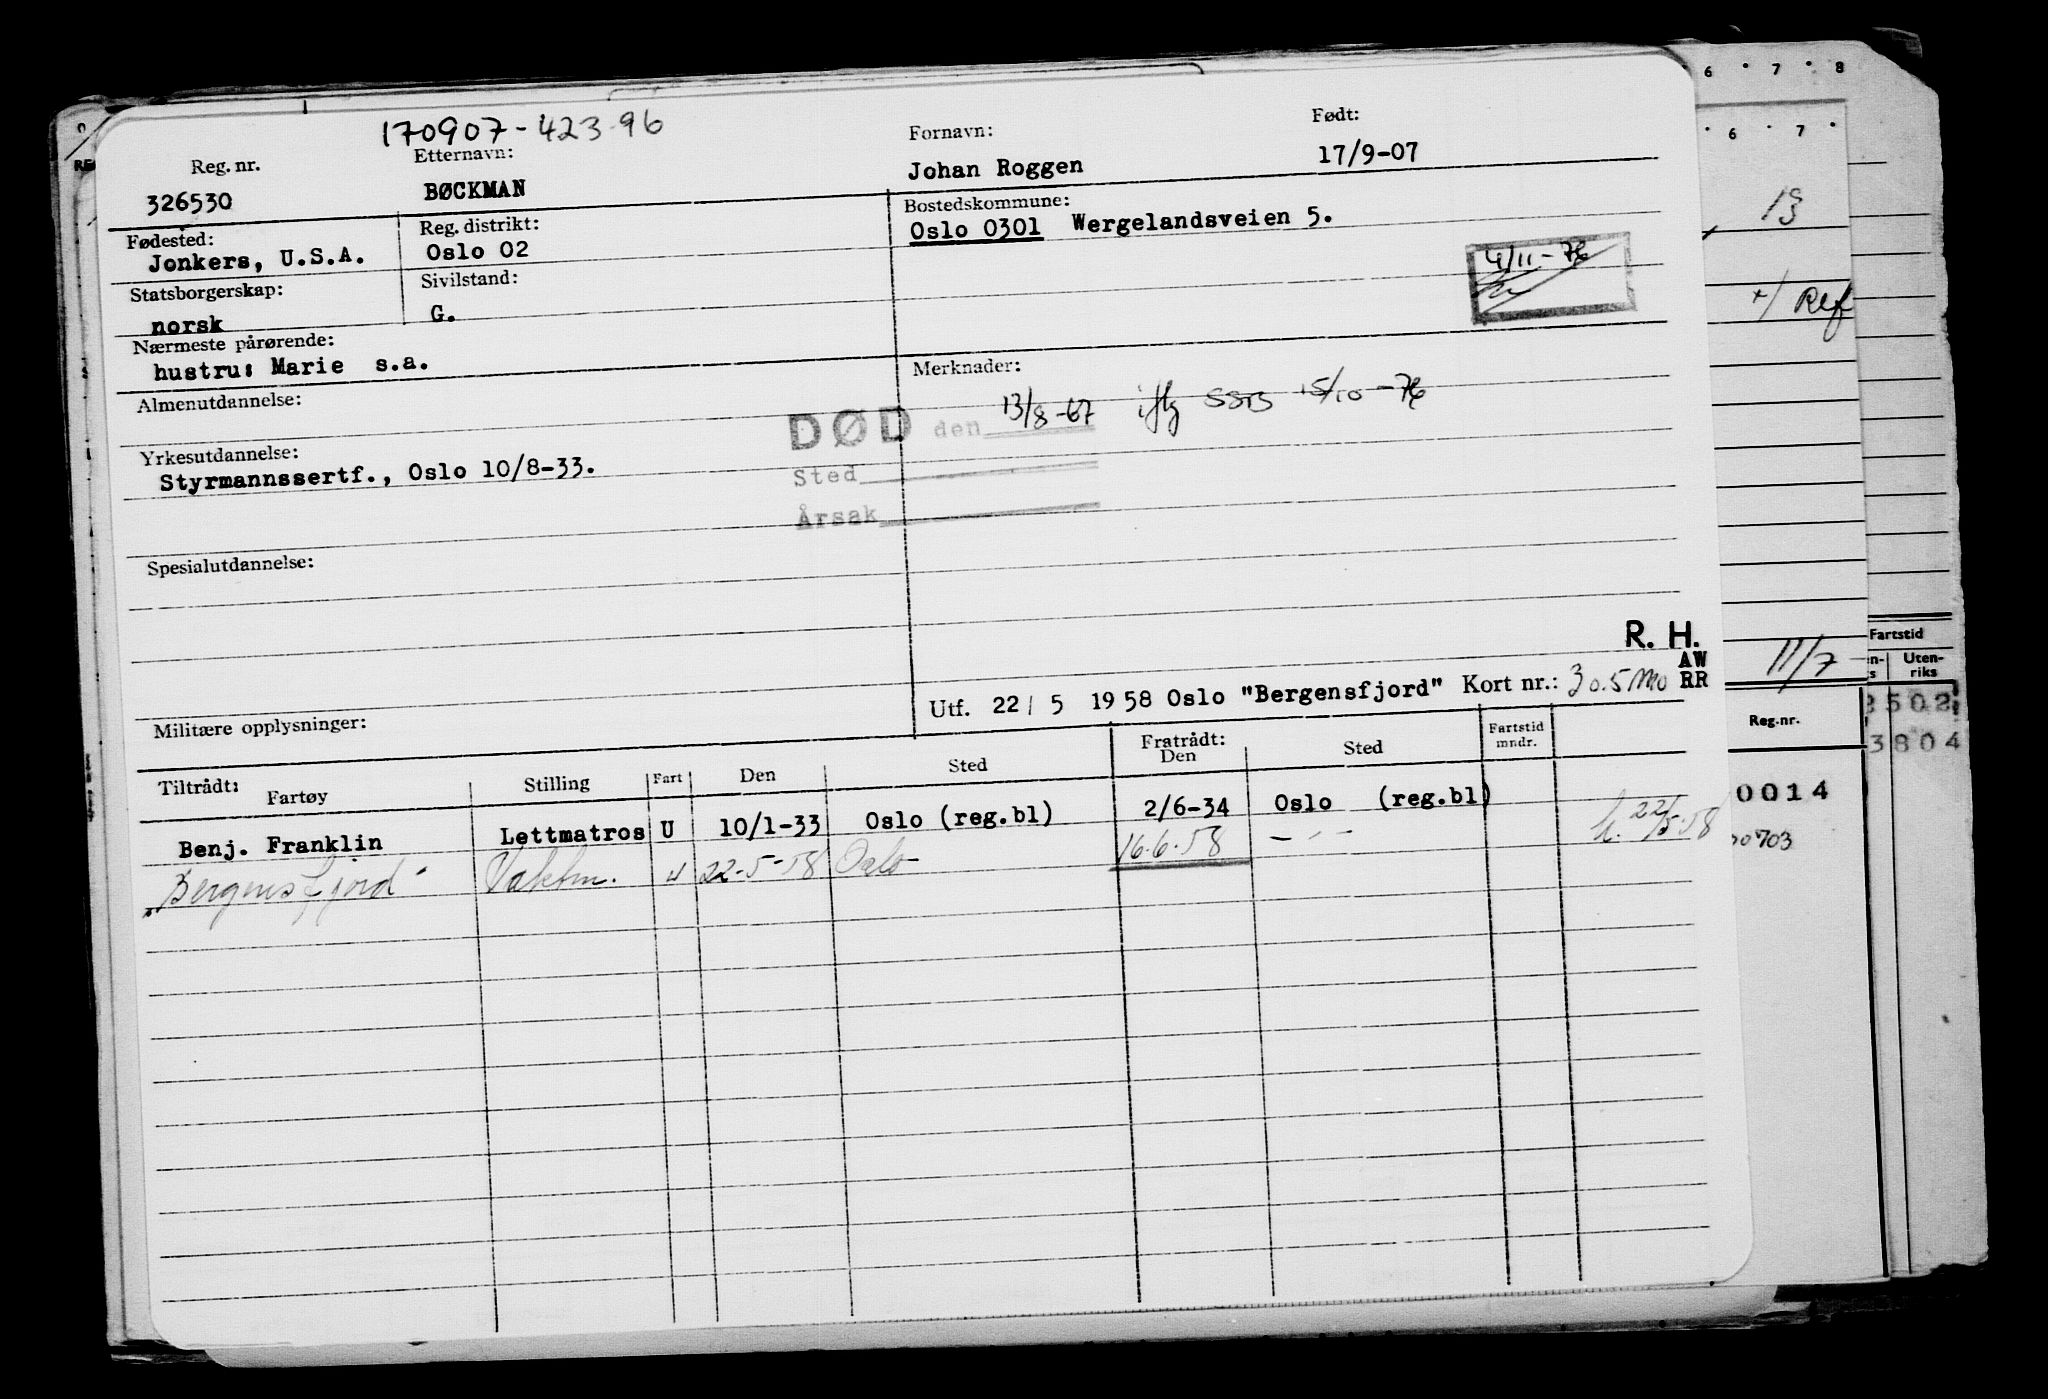 170907-423.96
Reg. nr. Etternavn: Fornavn: Født:
326530 BØCKMAN Johan Roggen 17/9-07
Fødested: Reg. distrikt: Bostedskommune:
Jonkers, U.S.A. Oslo 02 Oslo 0301 Wergelandsveien 5.
Statsborgerskap: Sivilstand:
norsk G.
4/11-76
Nærmeste pårørende:
hustru: Marie s.a.
Merknader:
Almenutdannelse:
DØD den 13/8-67 iflg SSB 15/10-76
Yrkesutdannelse:
Styrmannssertf., Oslo 10/8-33.
Sted
Årsak
Spesialutdannelse:
R. H.
AW
RR
Militære opplysninger:
Utf. 22/ 5 1958 Oslo "Bergensfjord" Kort nr.: 30.5
Tiltrådt: Fratrådt:
Fartøy Stilling Fart Den Sted Den Sted Fartstid mndr.
Benj. Franklin Lettmatros U 10/1-33 Oslo (reg.bl) 2/6-34 Oslo (reg.bl)
"Bergensfjord" U 22-5-58 Oslo 16.6.58 -"- 22/5-58
6 7 8
6 7
13
Ref
11/7
Fartstid
Uten-
riks
Reg.-nr.
2502
3804
0014
0703